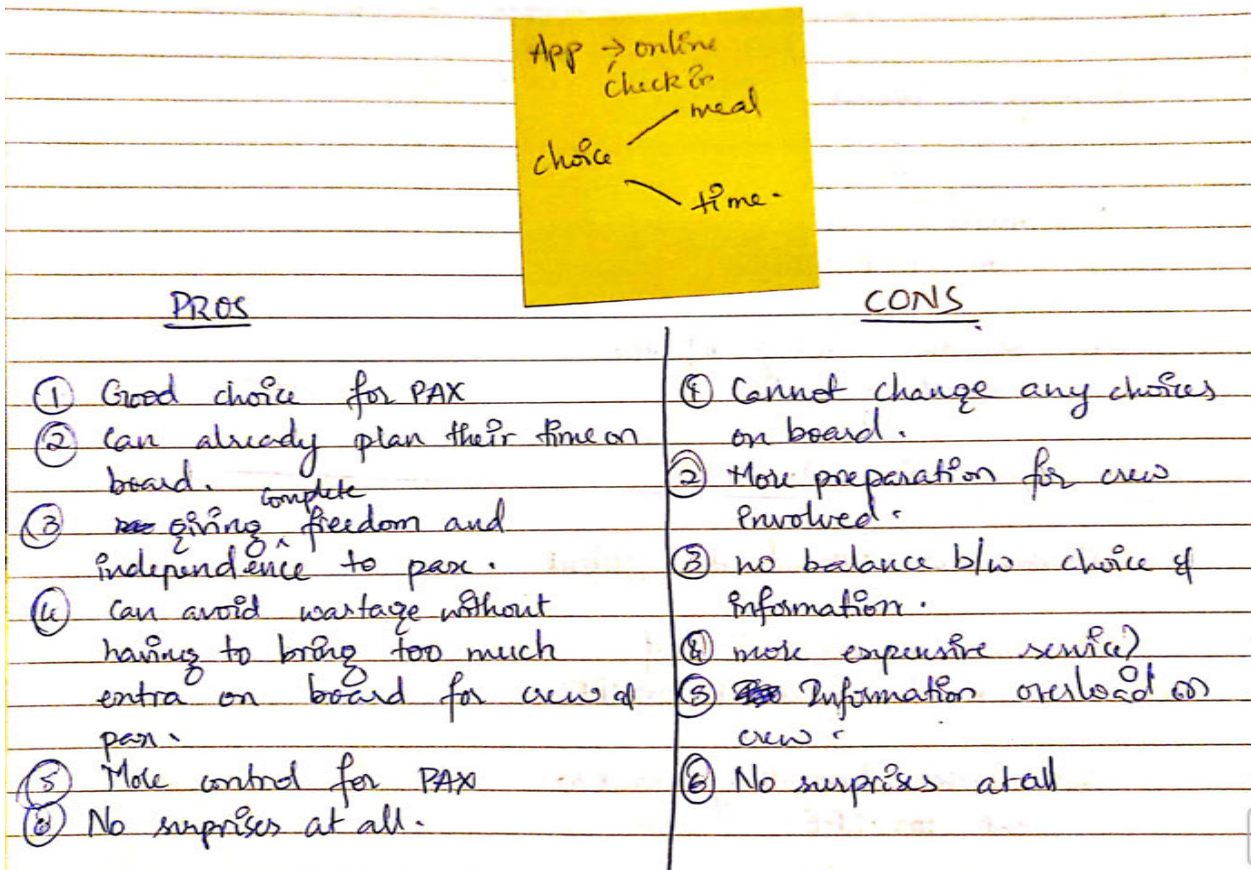 App → online
check in
choice meal
time.
PROS
① Good choice for PAX
② can already plan their time on
board.
③ giving complete freedom and
independence to pax.
④ can avoid wastage without
having to bring too much
extra on board for crew &
pax.
⑤ More control for PAX
⑥ No surprises at all.
CONS
① Cannot change any choices
on board.
② More preparation for crew
involved.
③ no balance b/w choice &
information.
④ more expensive service?
⑤ Information overload on
crew.
⑥ No surprises at all